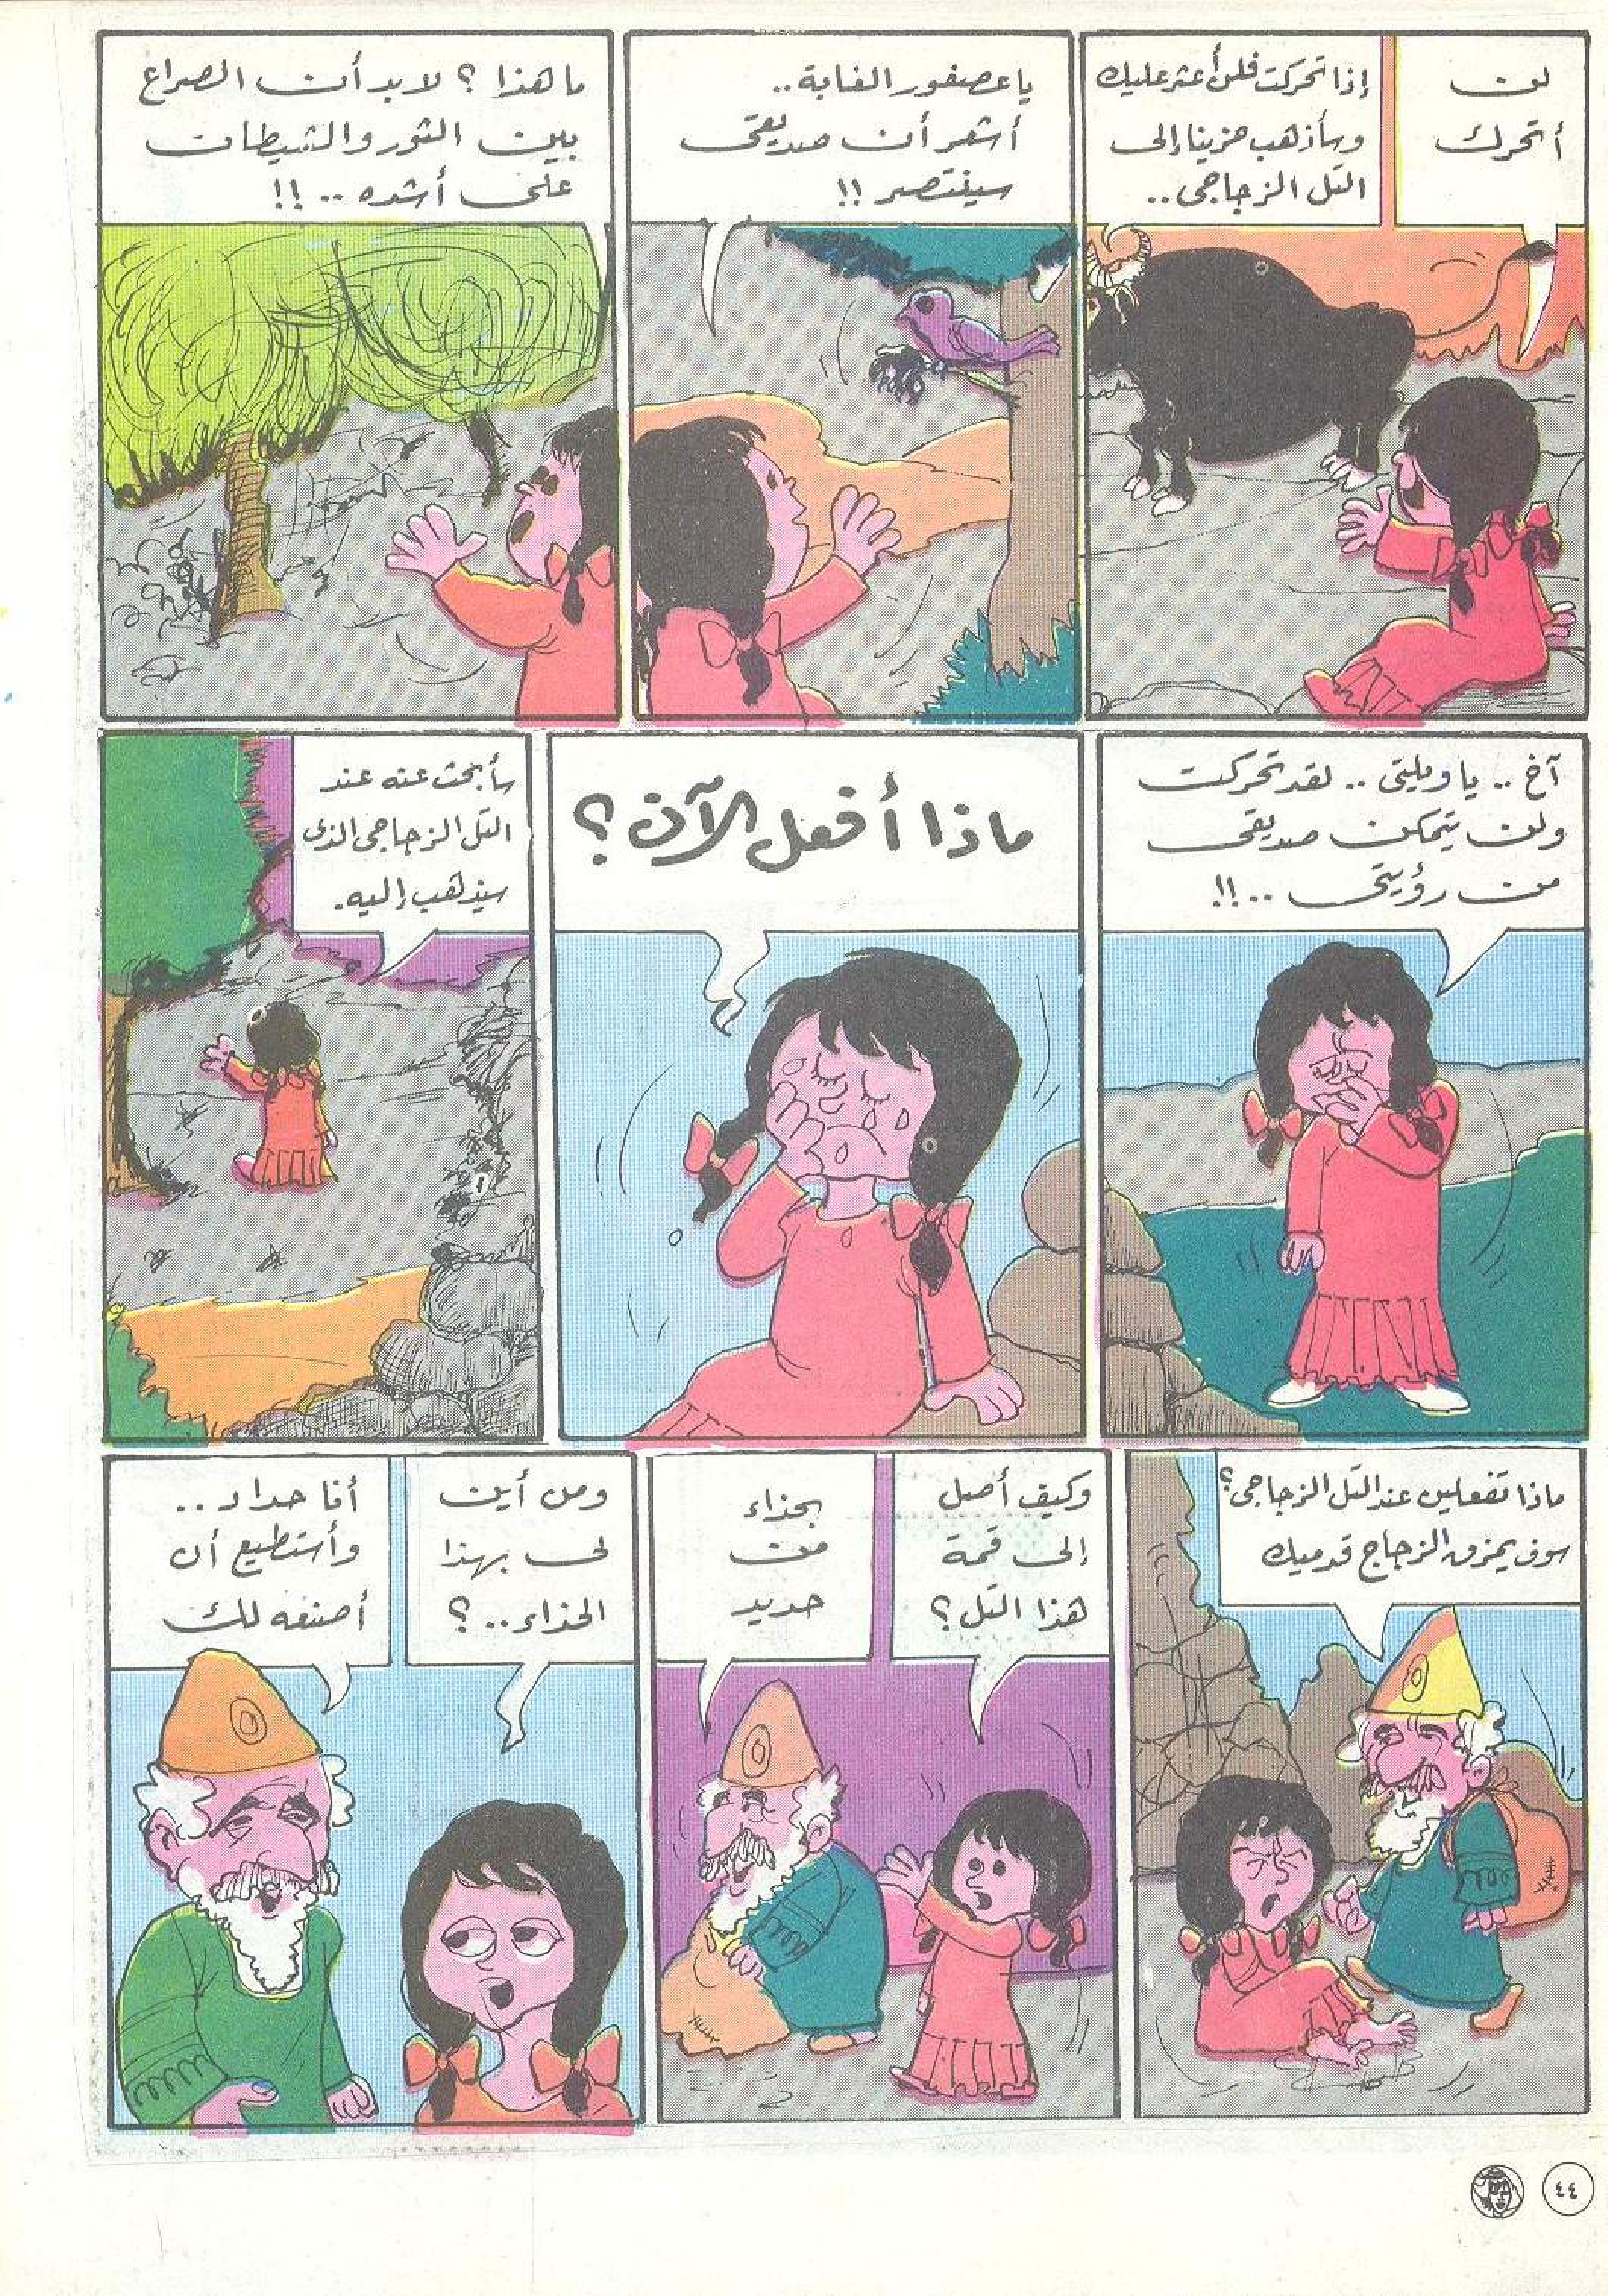 لن
أتحرك
إذا تحركت فلن أعثر عليك
وسأذهب حزينا إلى
التل الزجاجى..
يا عصفور الغابة..
أشعر أن صديقى
سينتصر !!
ما هذا ؟ لابد أن الصراع
بين الثور والشيطان
على أشده .. !!
آخ .. يا ويلتى .. لقد تحركت
ولن يتمكن صديقى
من رؤيتى ..!!
ماذا أفعل الآن ؟
سأبحث عنه عند
التل الزجاجى الذى
سيذهب إليه.
ماذا تفعلين عند التل الزجاجى؟
سوف يمزق الزجاج قدميك
وكيف أصل
إلى قمة
هذا التل ؟
بحذاء
من
حديد
ومن أين
لى بهذا
الحذاء.. ؟
أنا حداد ..
وأستطيع أن
أصنعه لك
٤٤